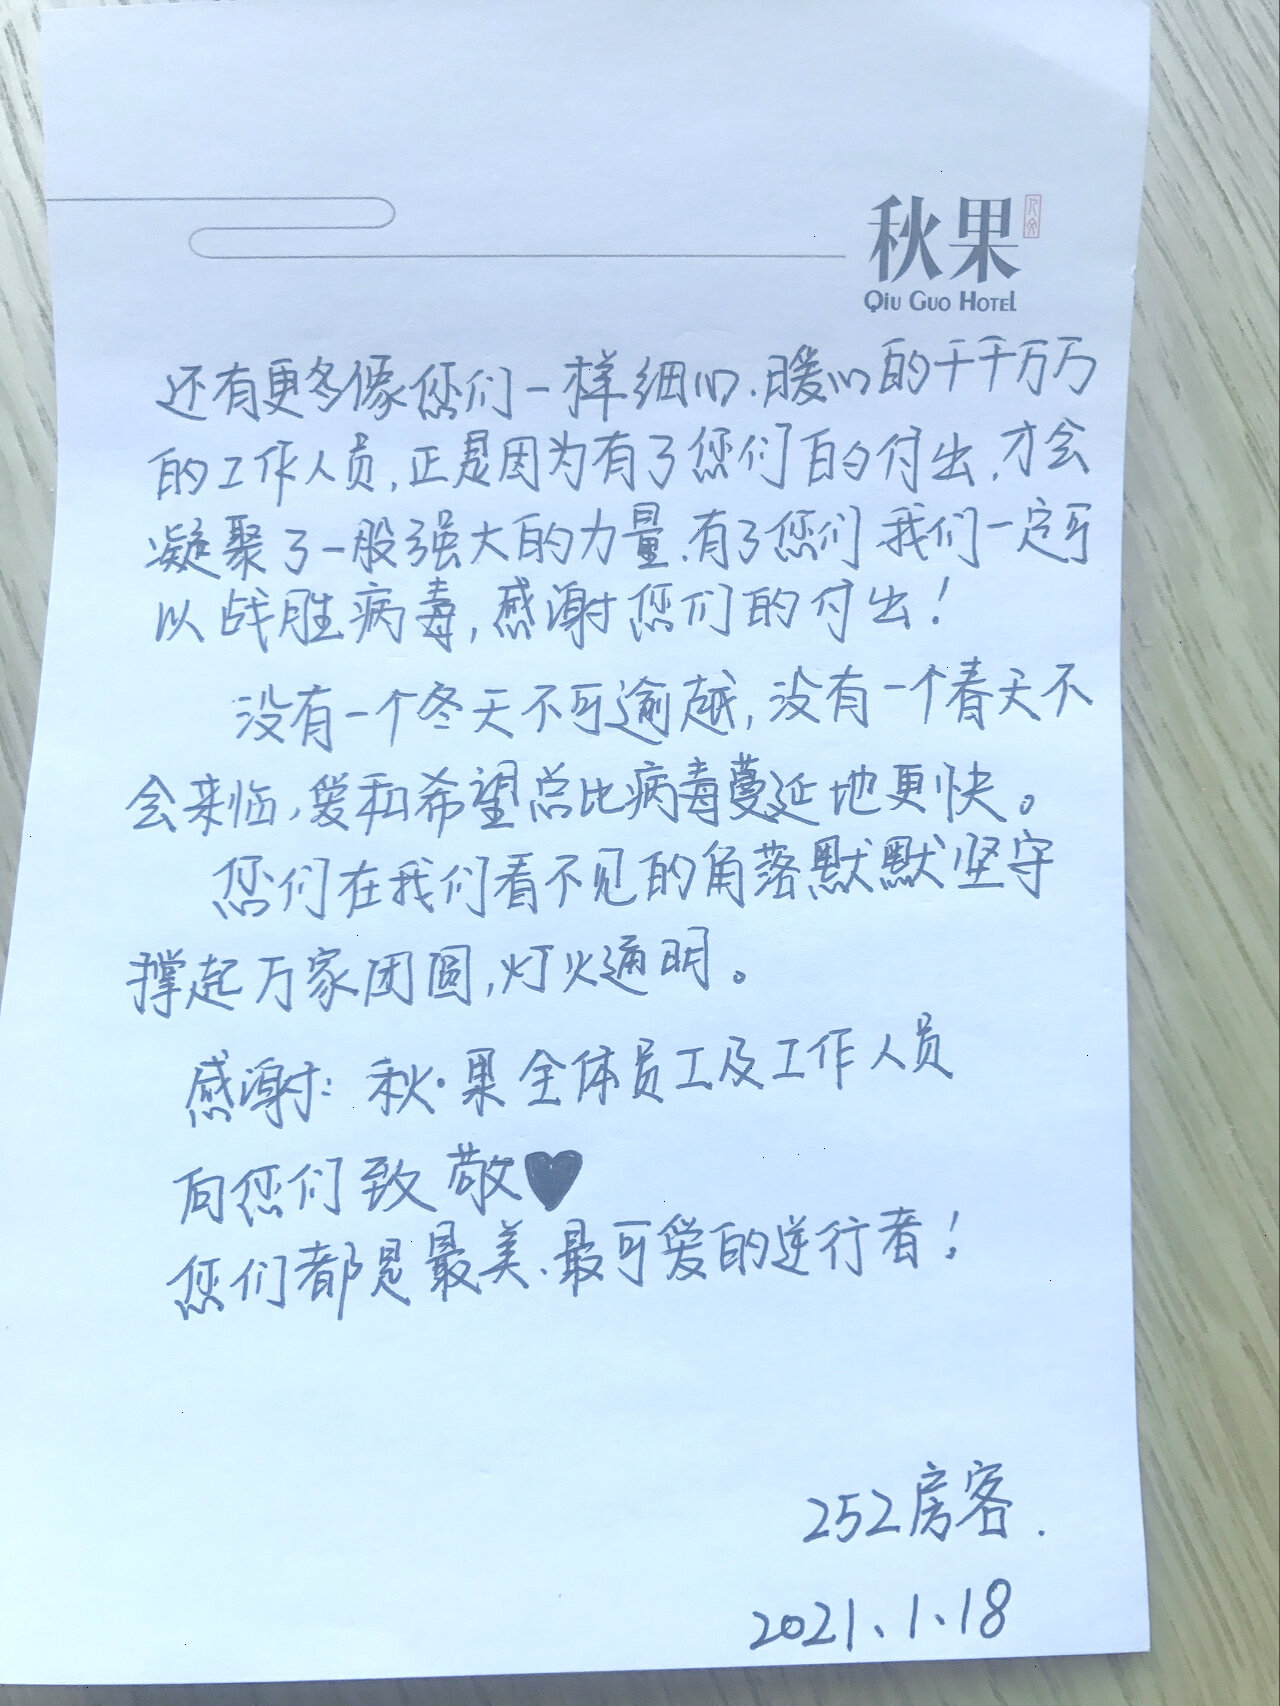 秋果
Qiu Guo Hotel
还有更多像您们一样细心.暖心的千千万万
的工作人员,正是因为有了您们的付出,才会
凝聚了一股强大的力量.有了您们 我们一定可
以战胜病毒,感谢您们的付出!
没有一个冬天不可逾越,没有一个春天不
会来临,爱和希望总比病毒蔓延地更快。
您们在我们看不见的角落默默坚守
撑起万家团圆,灯火通明。
感谢: 秋·果全体员工及工作人员
向您们致敬♥
您们都是最美.最可爱的逆行者!
252房客.
2021、1、18